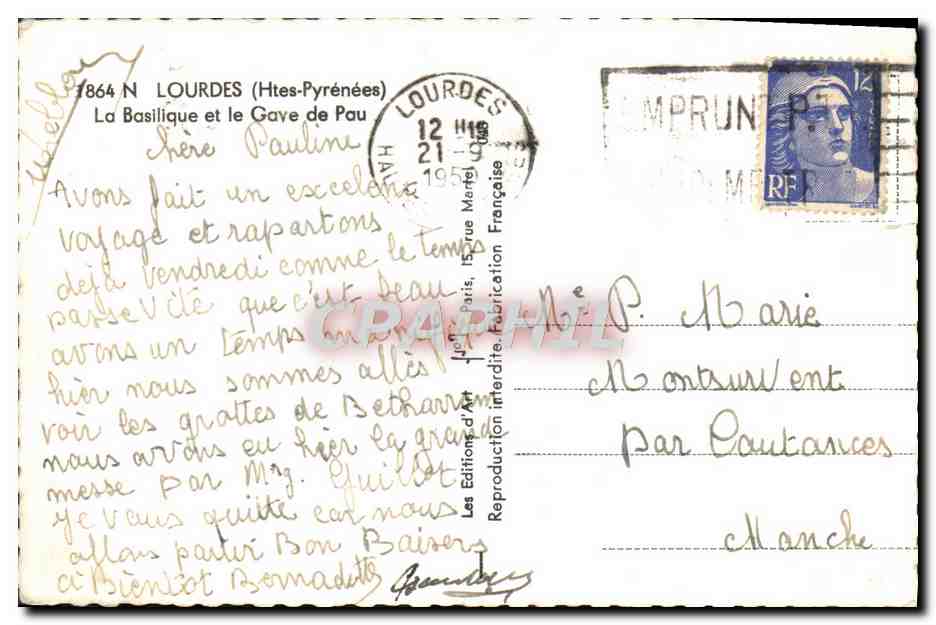 1864 N LOURDES (Htes-Pyrénées)
La Basilique et le Gave de Pau
LOURDES
12 H
21 - 9
1950
EMPRUNT P.T
12
RF
chère Pauline
Avons fait un excelent
voyage et rapartons
déjà vendredi comme le temps
passe vite que c'est beau
avons un temps
hier nous sommes allés
voir les grottes de Betharram
nous avons eu hier la grand
messe par Mrg. Guillot
je vous quitte car nous
allons partir Bon Baisers
à Bientot Bernadette
Les Editions d'Art Yvon Paris, 15, rue Martel
Reproduction interdite. Fabrication Française
CPAPHIL
Me P. Marie
Montsurvent
par Coutances
Manche